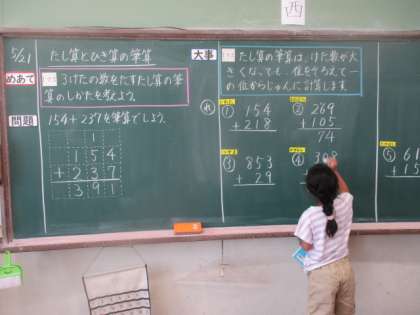 西
5/21
たし算とひき算の筆算
めあて
3けたの数をたすたし算の筆
算のしかたを考えよう。
問題
154+237を筆算でしよう。
1
154
+237
391
大事
たし算の筆算は、けた数が大
きくなっても、位をそろえて一
の位からじゅんに計算します。
① 154
+218
② 269
+105
74
③ 853
+29
④ 308
⑤ 61
+15